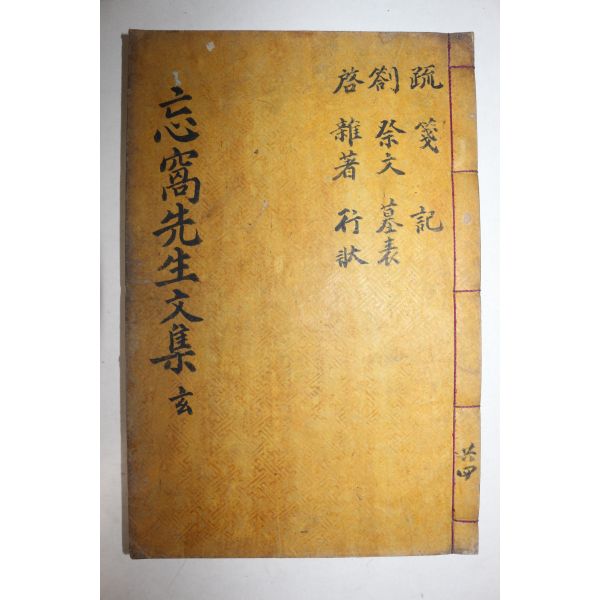 疏 箋 記
劄 祭文 墓表
啓 雜著 行狀
忘窩先生文集 玄
共四